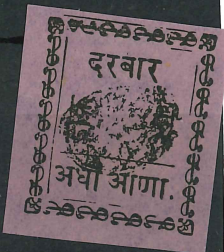 दरबार
अर्धा आणा.